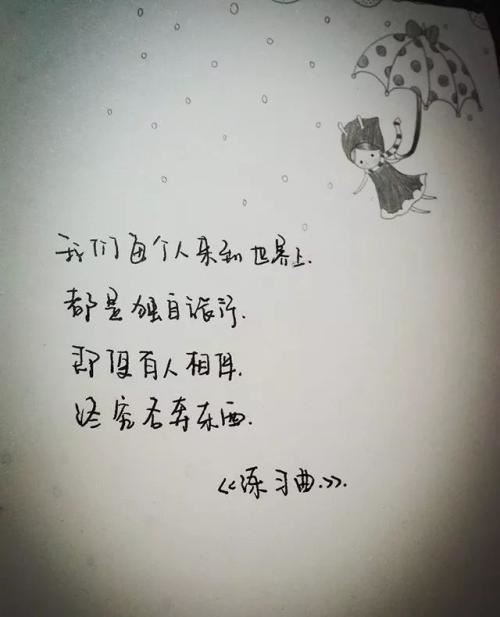 我们每个人来到世界上.
都是独自旅行.
即使有人相伴.
终究各奔东西.
《练习曲.》.